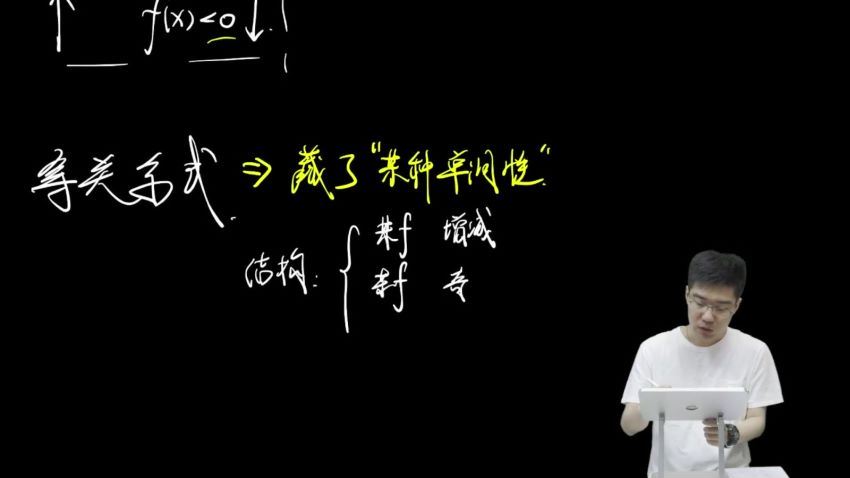 ↑ f(x)<0 ↓
导关系式. ⇒ 藏了"某种单调性".
结构: { 某f 增减
某f 奇